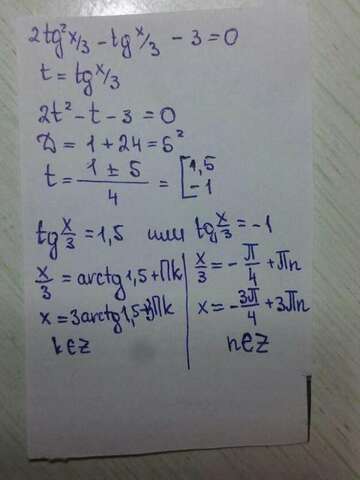 2tg²x/3 - tgx/3 - 3 = 0
t = tgx/3
2t² - t - 3 = 0
D = 1 + 24 = 5²
t = (1 ± 5)/4 = [1,5 -1
tg x/3 = 1,5 или tg x/3 = -1
x/3 = arctg1,5 + Πk
x = 3arctg1,5 + 3Πk
k∈Z
x/3 = -Π/4 + Πn
x = -3Π/4 + 3Πn
n∈Z